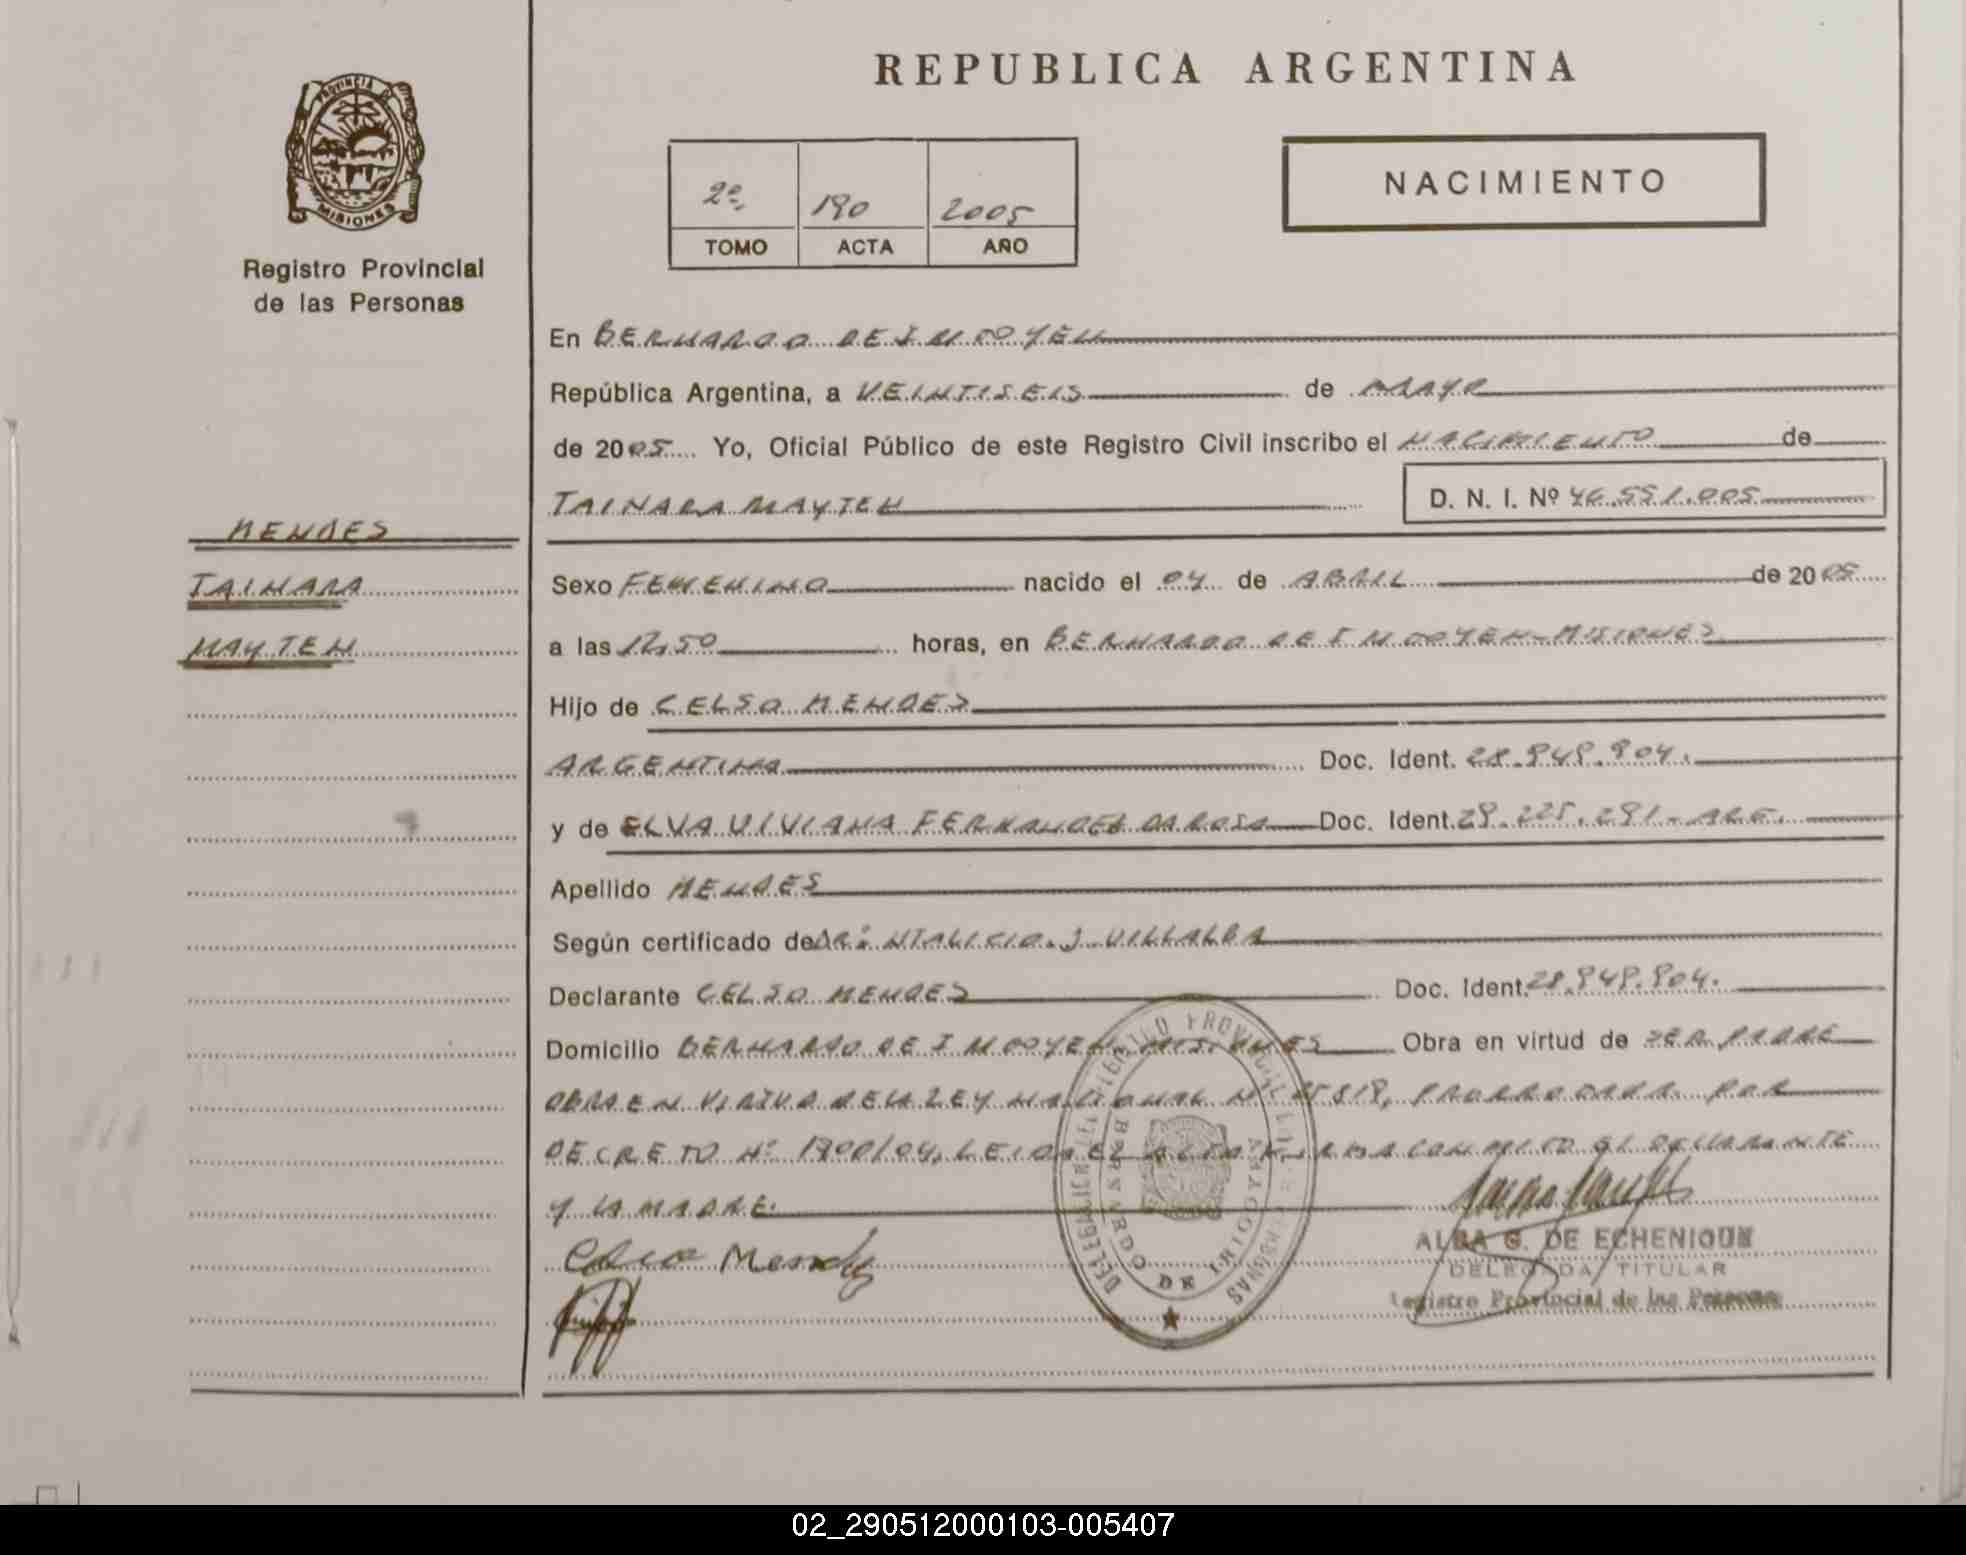 REPUBLICA ARGENTINA
PROVINCIA DE
MISIONES
Registro Provincial
de las Personas
2º 190 2005
TOMO ACTA AÑO
NACIMIENTO
En BERNARDO DE IRIGOYEN
República Argentina, a VEINTISEIS de MAYO
de 2005 Yo, Oficial Público de este Registro Civil inscribo el NACIMIENTO de
TAINARA MAYTEN D. N. I. Nº 46.551.005
MENDES
TAINARA
MAYTEN
Sexo FEMENINO nacido el 04 de ABRIL de 2005
a las 12,50 horas, en BERNARDO DE IRIGOYEN-MISIONES
Hijo de CELSO MENDES
ARGENTINA Doc. Ident. 28.949.904.
y de ELVA VIVIANA FERNANDES DA ROSA Doc. Ident. 29.225.291-ARG.
Apellido MENDES
Según certificado de DR. NTALICIO J VILLALBA
Declarante CELSO MENDES Doc. Ident. 28.949.904.
Domicilio BERNARDO DE IRIGOYEN MISIONES Obra en virtud de SER PADRE
OBRA EN VIRTUD DE LA LEY NACIONAL Nº 25819, PRORROGADA POR
DECRETO Nº 1900/04, LEIDA EL ACTA FIRMA CONMIGO EL DECLARANTE
Y LA MADRE.
Celso Mendes
DELEGACION REGISTRO PROVINCIAL DE LAS PERSONAS
BERNARDO DE IRIGOYEN
ALBA G. DE ECHENIQUE
DELEGADA TITULAR
Registro Provincial de las Personas
02_290512000103-005407